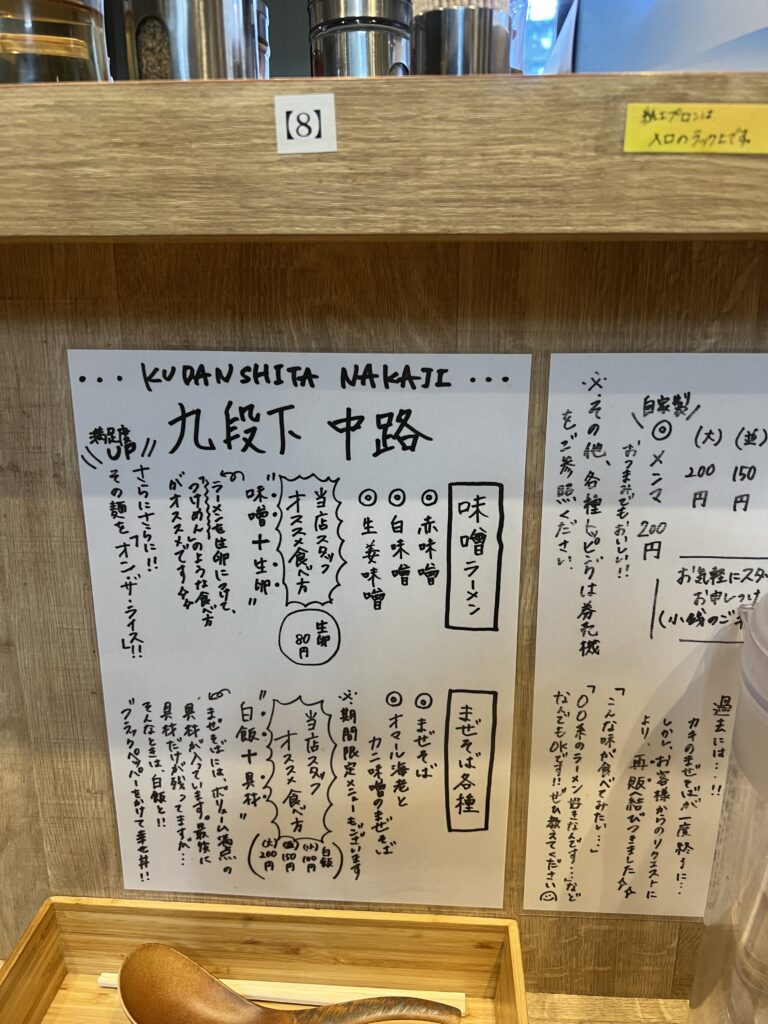 【8】
紙エプロンは
入口のラック上です。
... KUDANSHITA NAKAJI ...
九段下 中路
味噌ラーメン
◎赤味噌
◎白味噌
◎生姜味噌
当店スタッフ
オススメ食べ方
生卵
80円
"味噌+生卵"
ラーメンを生卵につけて、
「つけめん」のような食べ方
がオススメです☆☆
満足度
UP
さらにさらに!!
その麺を「オン・ザ・ライス」!!
まぜそば各種
◎まぜそば
◎オマール海老と
カニ味噌のまぜそば
※期間限定メニューもございます
当店スタッフ
オススメ食べ方
白飯
(小)100円
(並)150円
(大)200円
"白飯+具材"
まぜそばには、ボリューム満点の
具材が入っています。最後に
具材だけが残ってますが…
そんなときは、白飯と!!
ブラックペッパーをかけて幸せ丼!!
(並)
150円
(大)
200円
自家製
◎メンマ 200円
おつまみでもおいしい!!
※その他、各種トッピングは券売機
をご参照ください。
お気軽にスタ
お申しつけ
(小銭のご
過去には…!!
カキのまぜそばが一度終りに…
しかし、お客様からのリクエストに
より、再販へ結びつきました☆☆
「こんな味が食べてみたい…」
「〇〇系のラーメン好きなんです…」など
なんでもOKです!!ぜひ教えてください☺